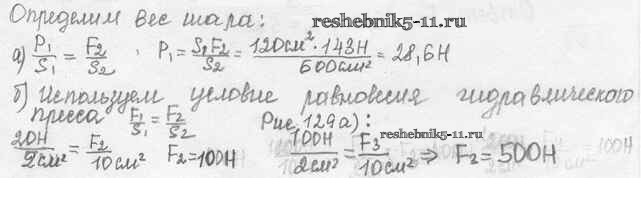 Определим вес шара: reshebnik5-11.ru
а) P₁/S₁ = F₂/S₂ ; P₁ = S₁F₂/S₂ = 120см²·143Н/600см² = 28,6Н
б) Используем условие равновесия гидравлического
пресса F₁/S₁ = F₂/S₂ Рис. 129а):
20Н/2см² = F₂/10см² F₂ = 100Н 100Н/2см² = F₃/10см² ⇒ F₂ = 500Н
reshebnik5-11.ru